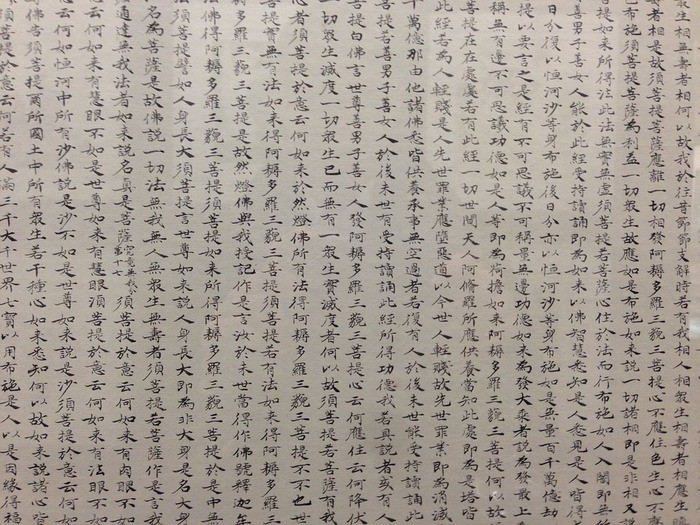 衆生相無壽者相何以故我於往昔節節支解時若有我相人相衆生相壽者相應生
壽者相是故須菩提菩薩應離一切相發阿耨多羅三藐三菩提心不應住色生心不
布施須菩提菩薩為利益一切衆生故應如是布施如来說一切諸相即是非相又
菩提如来所得法此法無實無虛須菩提若菩薩心住於法而行布施如人入闇即無
善男子善女人能於此經受持讀誦即為如来以佛智慧悉知是人悉見是人皆得
日分復以恒河沙等身布施後日分亦以恒河沙等身布施如是無量百千萬億劫
提以要言之是經有不可思議不可稱量無邊功德如来為發大乘者說為發最上
無有邊不可思議功德如是人等即為荷擔如来阿耨多羅三藐三菩提何以故
提在在處處若有此經一切世間天人阿修羅所應供養當知此處即為是塔皆
此經若為人輕賤是人先世罪業應墮惡道以今世人輕賤故先世罪業即為消滅
千萬億那由他諸佛悉皆供養承事無空過者若復有人於後末世能受持讀誦此
提若善男子善女人於後末世有受持讀誦此經所得功德我若具說者或有人
提白佛言世尊善男子善女人發阿耨多羅三藐三菩提心云何應住云何降伏
一切衆生滅度一切衆生已而無有一衆生實滅度者何以故須菩提若菩薩有
心者須菩提於意云何如来於然燈佛所有法得阿耨多羅三藐三菩提不不也世
提實無有法如来得阿耨多羅三藐三菩提須菩提若有法如来得阿耨多羅
耨多羅三藐三菩提是故然燈佛與我授記作是言汝於来世當得作佛號釋迦牟
法佛得阿耨多羅三藐三菩提須菩提如来所得阿耨多羅三藐三菩提於是中無
須菩提譬如人身長大須菩提言世尊如来說人身長大即為非大身是名大身
名為菩薩是故佛說一切法無我無人無衆生無壽者須菩提若菩薩作是言我
通達無我法者如来說名真是菩薩究竟無我分第十七須菩提於意云何如来有肉眼不如
意云何如来有慧眼不如是世尊如来有慧眼須菩提於意云何如来有法眼不如
云何如恒河中所有沙佛說是沙不如是世尊如来說是沙須菩提於意云何
佛告須菩提爾所國土中所有衆生若干種心如来悉知何以故如来說諸心皆
須菩提於意云何若有人滿三千大千世界七寶以用布施是人以是因緣得福